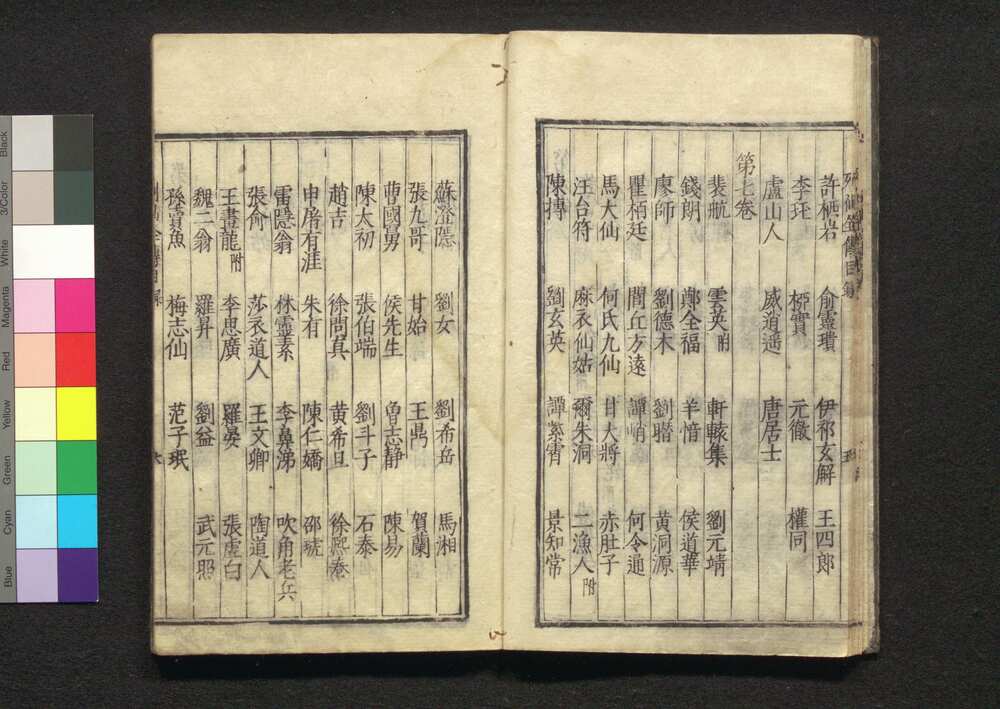 列仙全傳目錄
許栖岩 俞靈璝 伊祁玄解 王四郎
李玨 元徹 權同
盧山人 戚逍遥 唐居士
第七卷
裴航 雲英附 軒轅集 劉元靖
錢朗 鄭全福 羊愔 侯道華
康師 劉德本 劉瞻 黄洞源
瞿柄廷 閭丘方遠 譚峭 何令通
馬大仙 何氏九仙 甘大將 赤肚子
汪台符 麻衣仙姑 爾朱洞 二漁人附
陳摶 劉玄英 譚紫霄 景知常
蘇澄隱 劉女 劉希岳 馬湘
張九哥 甘始 王鼎 賀蘭
曹國舅 侯先生 魯志静 陳易
陳太初 張伯端 劉斗子 石泰
趙吉 徐問真 黄希旦 徐熙春
申屠有涯 朱有 陳仁嬌 邵琥
雷隱翁 林靈素 李鼻涕 吹角老兵
張俞 莎衣道人 王文卿 陶道人
王晝龍附 李思廣 羅晏 張虚白
魏二翁 羅昇 劉益 武元照
孫賣魚 梅志仙 范子珉
六
Black
3/Color
White
Magenta
Red
Yellow
Green
Cyan
Blue